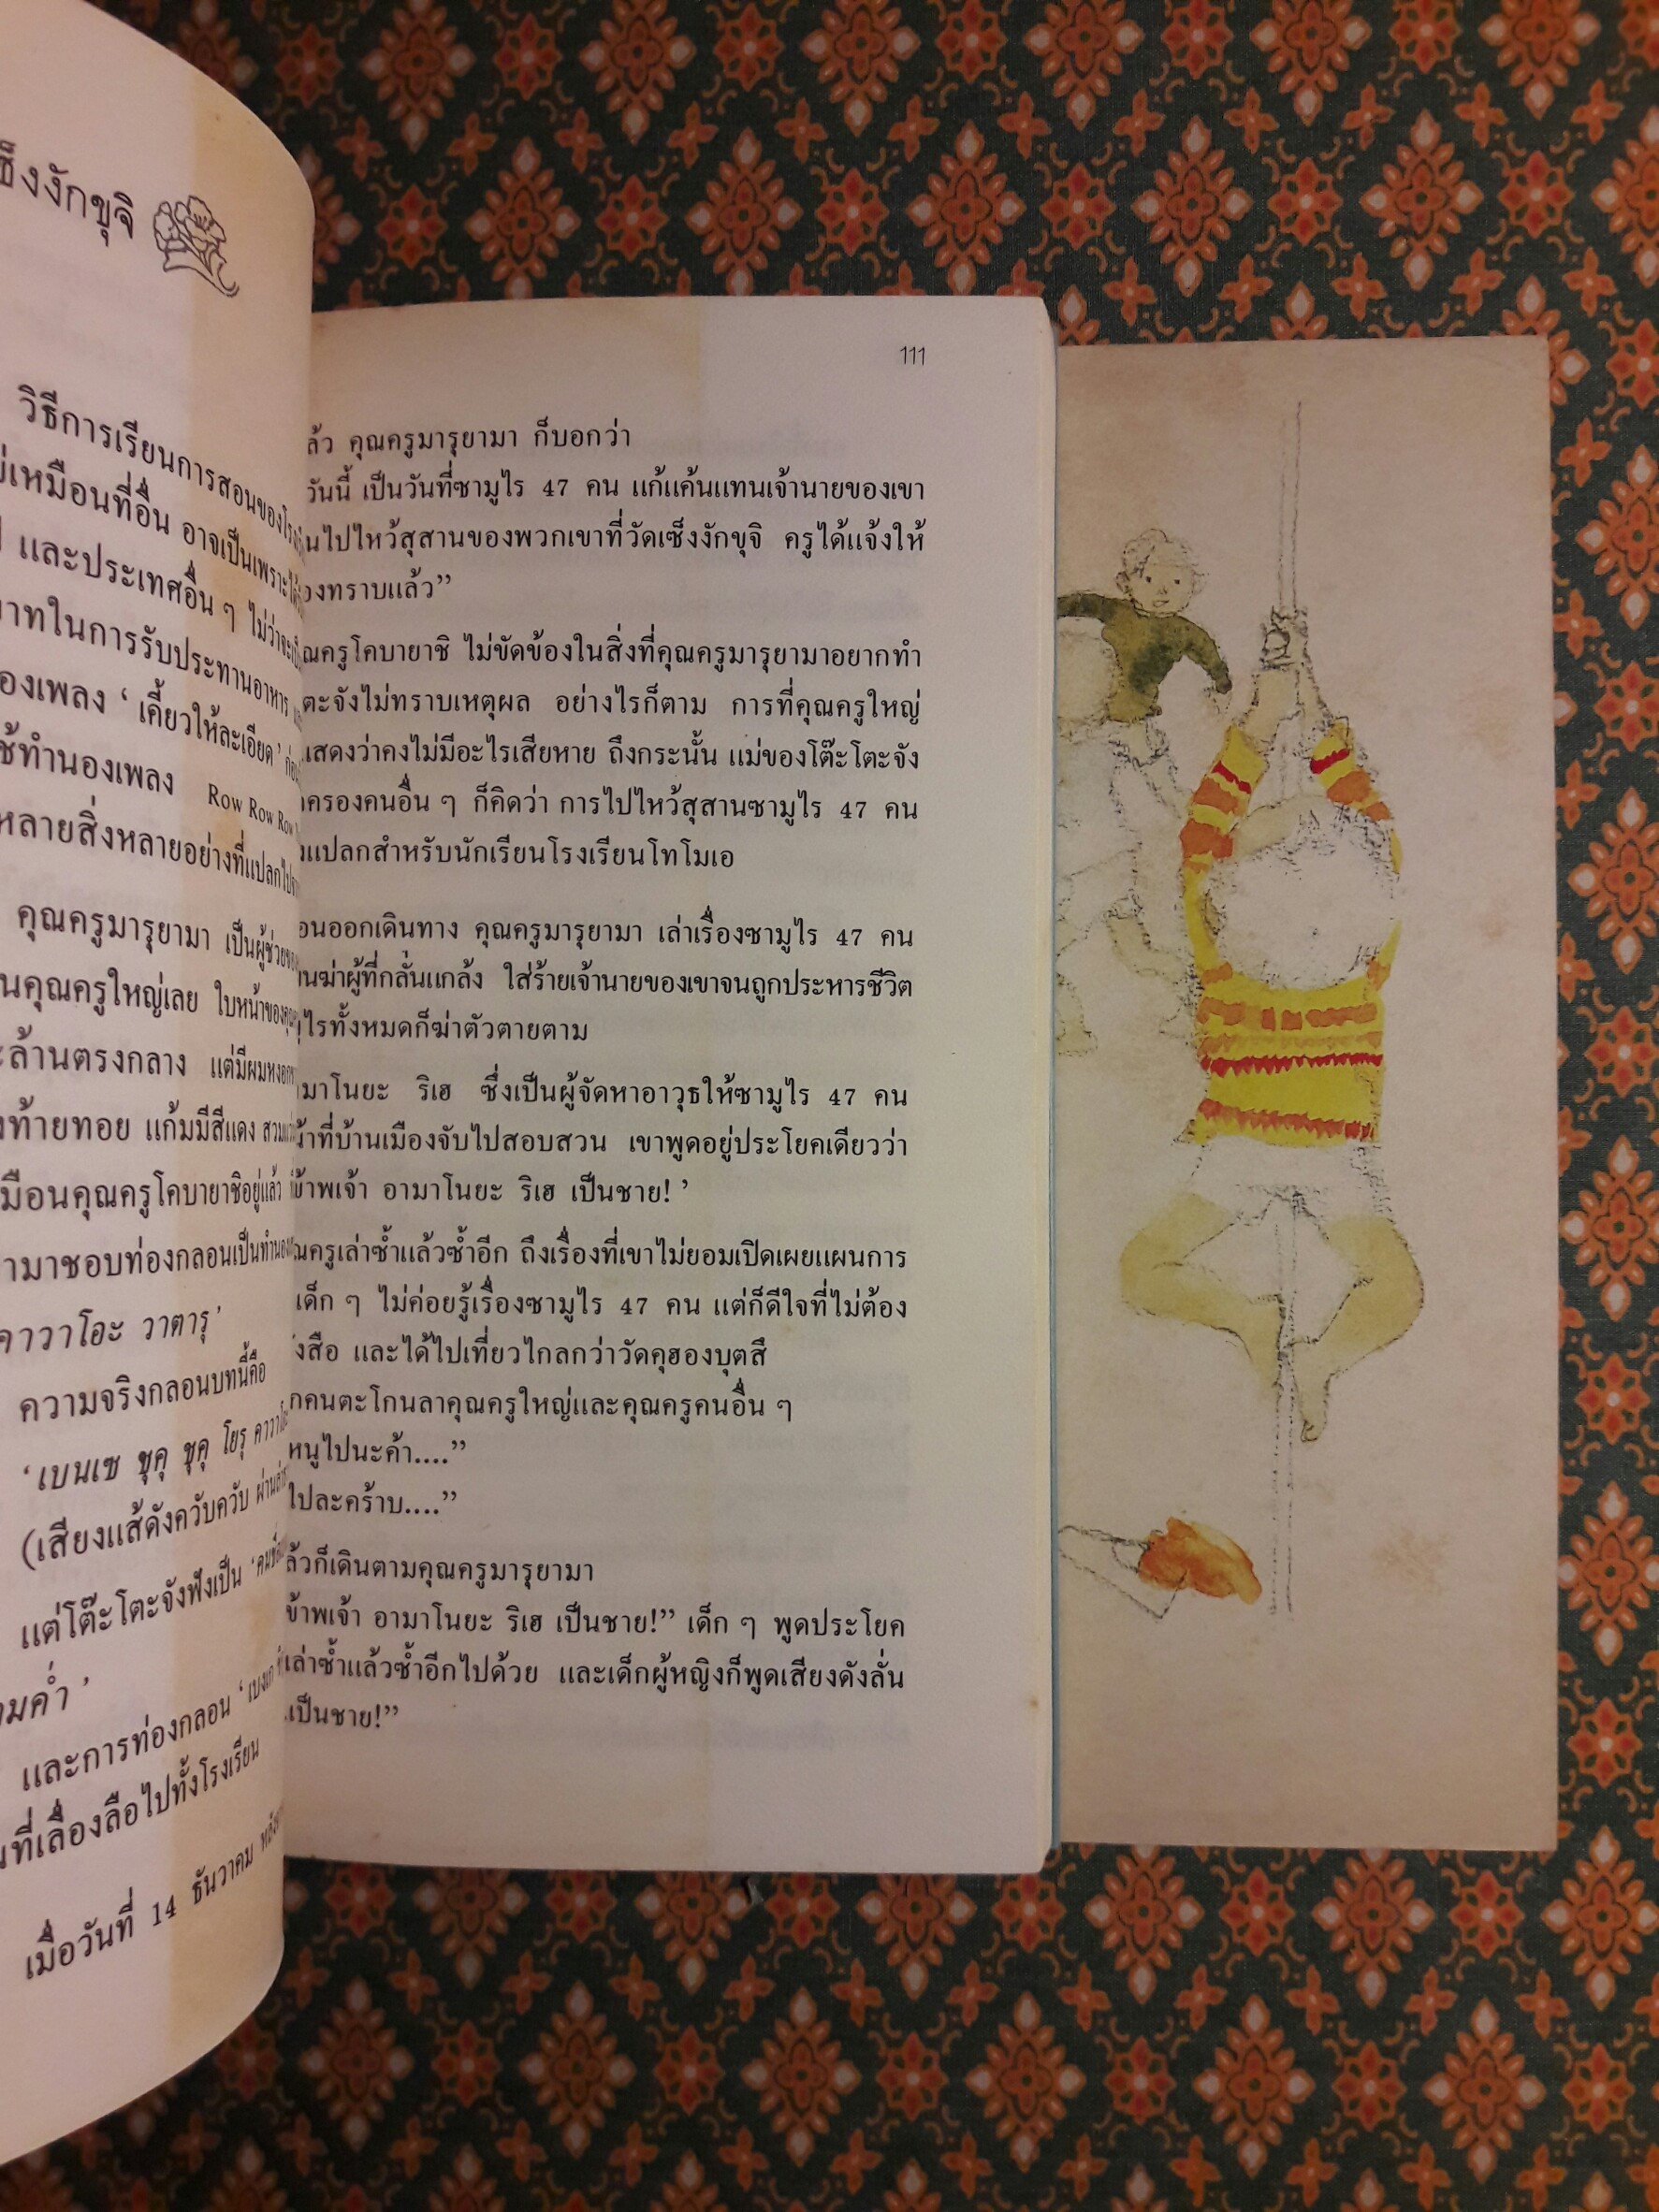 เซ็งงักขุจิ
วิธีการเรียนการสอนของ
เหมือนที่อื่น อาจเป็นเพราะได้
และประเทศอื่น ๆ ไม่ว่าจะเป็น
ในการรับประทานอาหาร
ของเพลง ‘ เคี้ยวให้ละเอียด’ ก่อน
ใช้ทำนองเพลง Row Row Row
หลายสิ่งหลายอย่างที่แปลกไป
คุณครูมารุยามา เป็นผู้ช่วย
คุณครูใหญ่เลย ใบหน้าของคุณ
ล้านตรงกลาง แต่มีผมหงอก
ท้ายทอย แก้มมีสีแดง สวม
เหมือนคุณครูโคบายาชิอยู่แล้ว
ชอบท่องกลอนเป็นทำนอง
คาวาโอะ วาตารุ’
ความจริงกลอนบทนี้คือ
‘เบนเซ ชุคุ ชุคุ โยรุ คาวาโอะ
(เสียงแส้ดังควับควับ ผ่าน
แต่โต๊ะโตะจังฟังเป็น
ค่ำ’
และการท่องกลอน ‘เบงเค
ที่เลื่องลือไปทั้งโรงเรียน
เมื่อวันที่ 14 ธันวาคม
111
ล้ว คุณครูมารุยามา ก็บอกว่า
วันนี้ เป็นวันที่ซามูไร 47 คน แก้แค้นแทนเจ้านายของเขา
นไปไหว้สุสานของพวกเขาที่วัดเซ็งงักขุจิ ครูได้แจ้งให้
องทราบแล้ว”
ณครูโคบายาชิ ไม่ขัดข้องในสิ่งที่คุณครูมารุยามาอยากทำ
ตะจังไม่ทราบเหตุผล อย่างไรก็ตาม การที่คุณครูใหญ่
แสดงว่าคงไม่มีอะไรเสียหาย ถึงกระนั้น แม่ของโต๊ะโตะจัง
ครองคนอื่น ๆ ก็คิดว่า การไปไหว้สุสานซามูไร 47 คน
แปลกสำหรับนักเรียนโรงเรียนโทโมเอ
อนออกเดินทาง คุณครูมารุยามา เล่าเรื่องซามูไร 47 คน
นฆ่าผู้ที่กลั่นแกล้ง ใส่ร้ายเจ้านายของเขาจนถูกประหารชีวิต
ไรทั้งหมดก็ฆ่าตัวตายตาม
มาโนยะ ริเฮ ซึ่งเป็นผู้จัดหาอาวุธให้ซามูไร 47 คน
้าที่บ้านเมืองจับไปสอบสวน เขาพูดอยู่ประโยคเดียวว่า
ข้าพเจ้า อามาโนยะ ริเฮ เป็นชาย! ’
ณครูเล่าซ้ำแล้วซ้ำอีก ถึงเรื่องที่เขาไม่ยอมเปิดเผยแผนการ
เด็ก ๆ ไม่ค่อยรู้เรื่องซามูไร 47 คน แต่ก็ดีใจที่ไม่ต้อง
งสือ และได้ไปเที่ยวไกลกว่าวัดคุฮองบุตสึ
กคนตะโกนลาคุณครูใหญ่และคุณครูคนอื่น ๆ
หนูไปนะค้า....”
ไปละคร้าบ....”
ล้วก็เดินตามคุณครูมารุยามา
ข้าพเจ้า อามาโนยะ ริเฮ เป็นชาย!” เด็ก ๆ พูดประโยค
เล่าซ้ำแล้วซ้ำอีกไปด้วย และเด็กผู้หญิงก็พูดเสียงดังลั่น
เป็นชาย!”